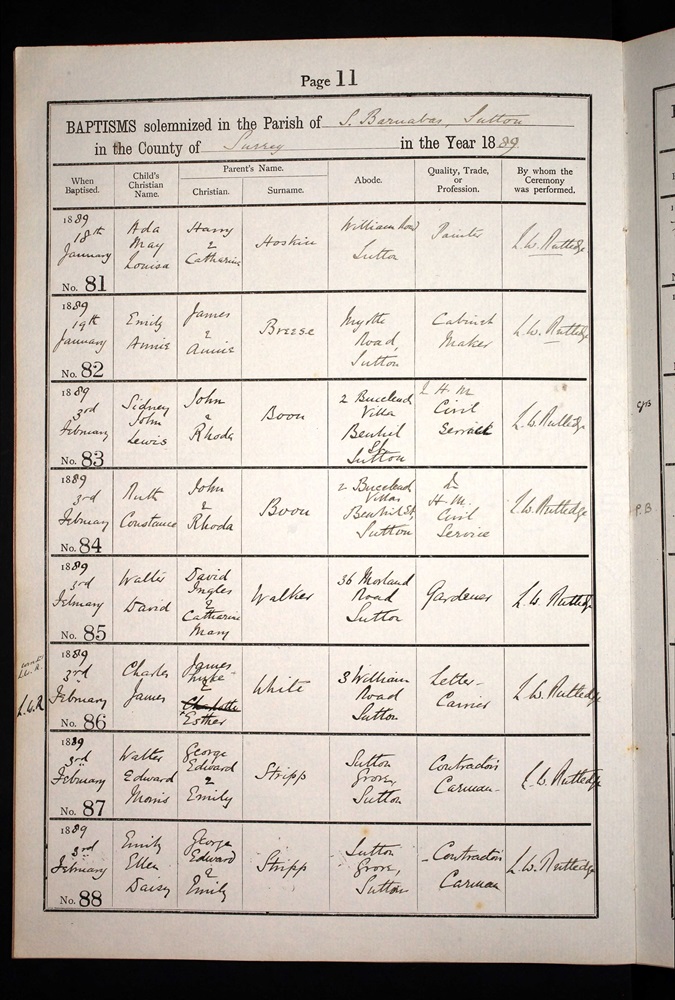 Page 11
BAPTISMS solemnized in the Parish of S. Barnabas, Sutton
in the County of Surrey in the Year 1889
When Baptised.
Child's Christian Name.
Parent's Name.
Christian.
Surname.
Abode.
Quality, Trade, or Profession.
By whom the Ceremony was performed.
1889
18th
January
No. 81
Ada
May
Louisa
Harry
&
Catharine
Hoskin
William Road
Sutton
Painter
L. W. Rutledge
1889
19th
January
No. 82
Emily
Annie
James
&
Annie
Breese
Myrtle
Road,
Sutton
Cabinet
Maker
L. W. Rutledge
1889
3rd
February
No. 83
Sidney
John
Lewis
John
&
Rhoda
Boon
2
Villa
Benhil
St
Sutton
H. M.
Civil
Service
L. W. Rutledge
1889
3rd
February
No. 84
Ruth
Constance
John
&
Rhoda
Boon
2
Villas
Benhil St,
Sutton
H. M.
Civil
Service
L. W. Rutledge
1889
3rd
February
No. 85
Walter
David
David
Ingles
&
Catharine
Mary
Walker
36 Morland
Road
Sutton
Gardener
L. W. Rutledge
L. W. R.
1889
3rd
February
No. 86
Charles
James
James
&
Charlotte
Esther
White
3 William
Road
Sutton
Letter-
Carrier
L. W. Rutledge
1889
3rd
February
No. 87
Walter
Edward
Morris
George
Edward
&
Emily
Stripp
Sutton
Grove,
Sutton
Contractor's
Carman
L. W. Rutledge
1889
3rd
February
No. 88
Emily
Ellen
Daisy
George
Edward
&
Emily
Stripp
Sutton
Grove,
Sutton
Contractor's
Carman
L. W. Rutledge
P. B.